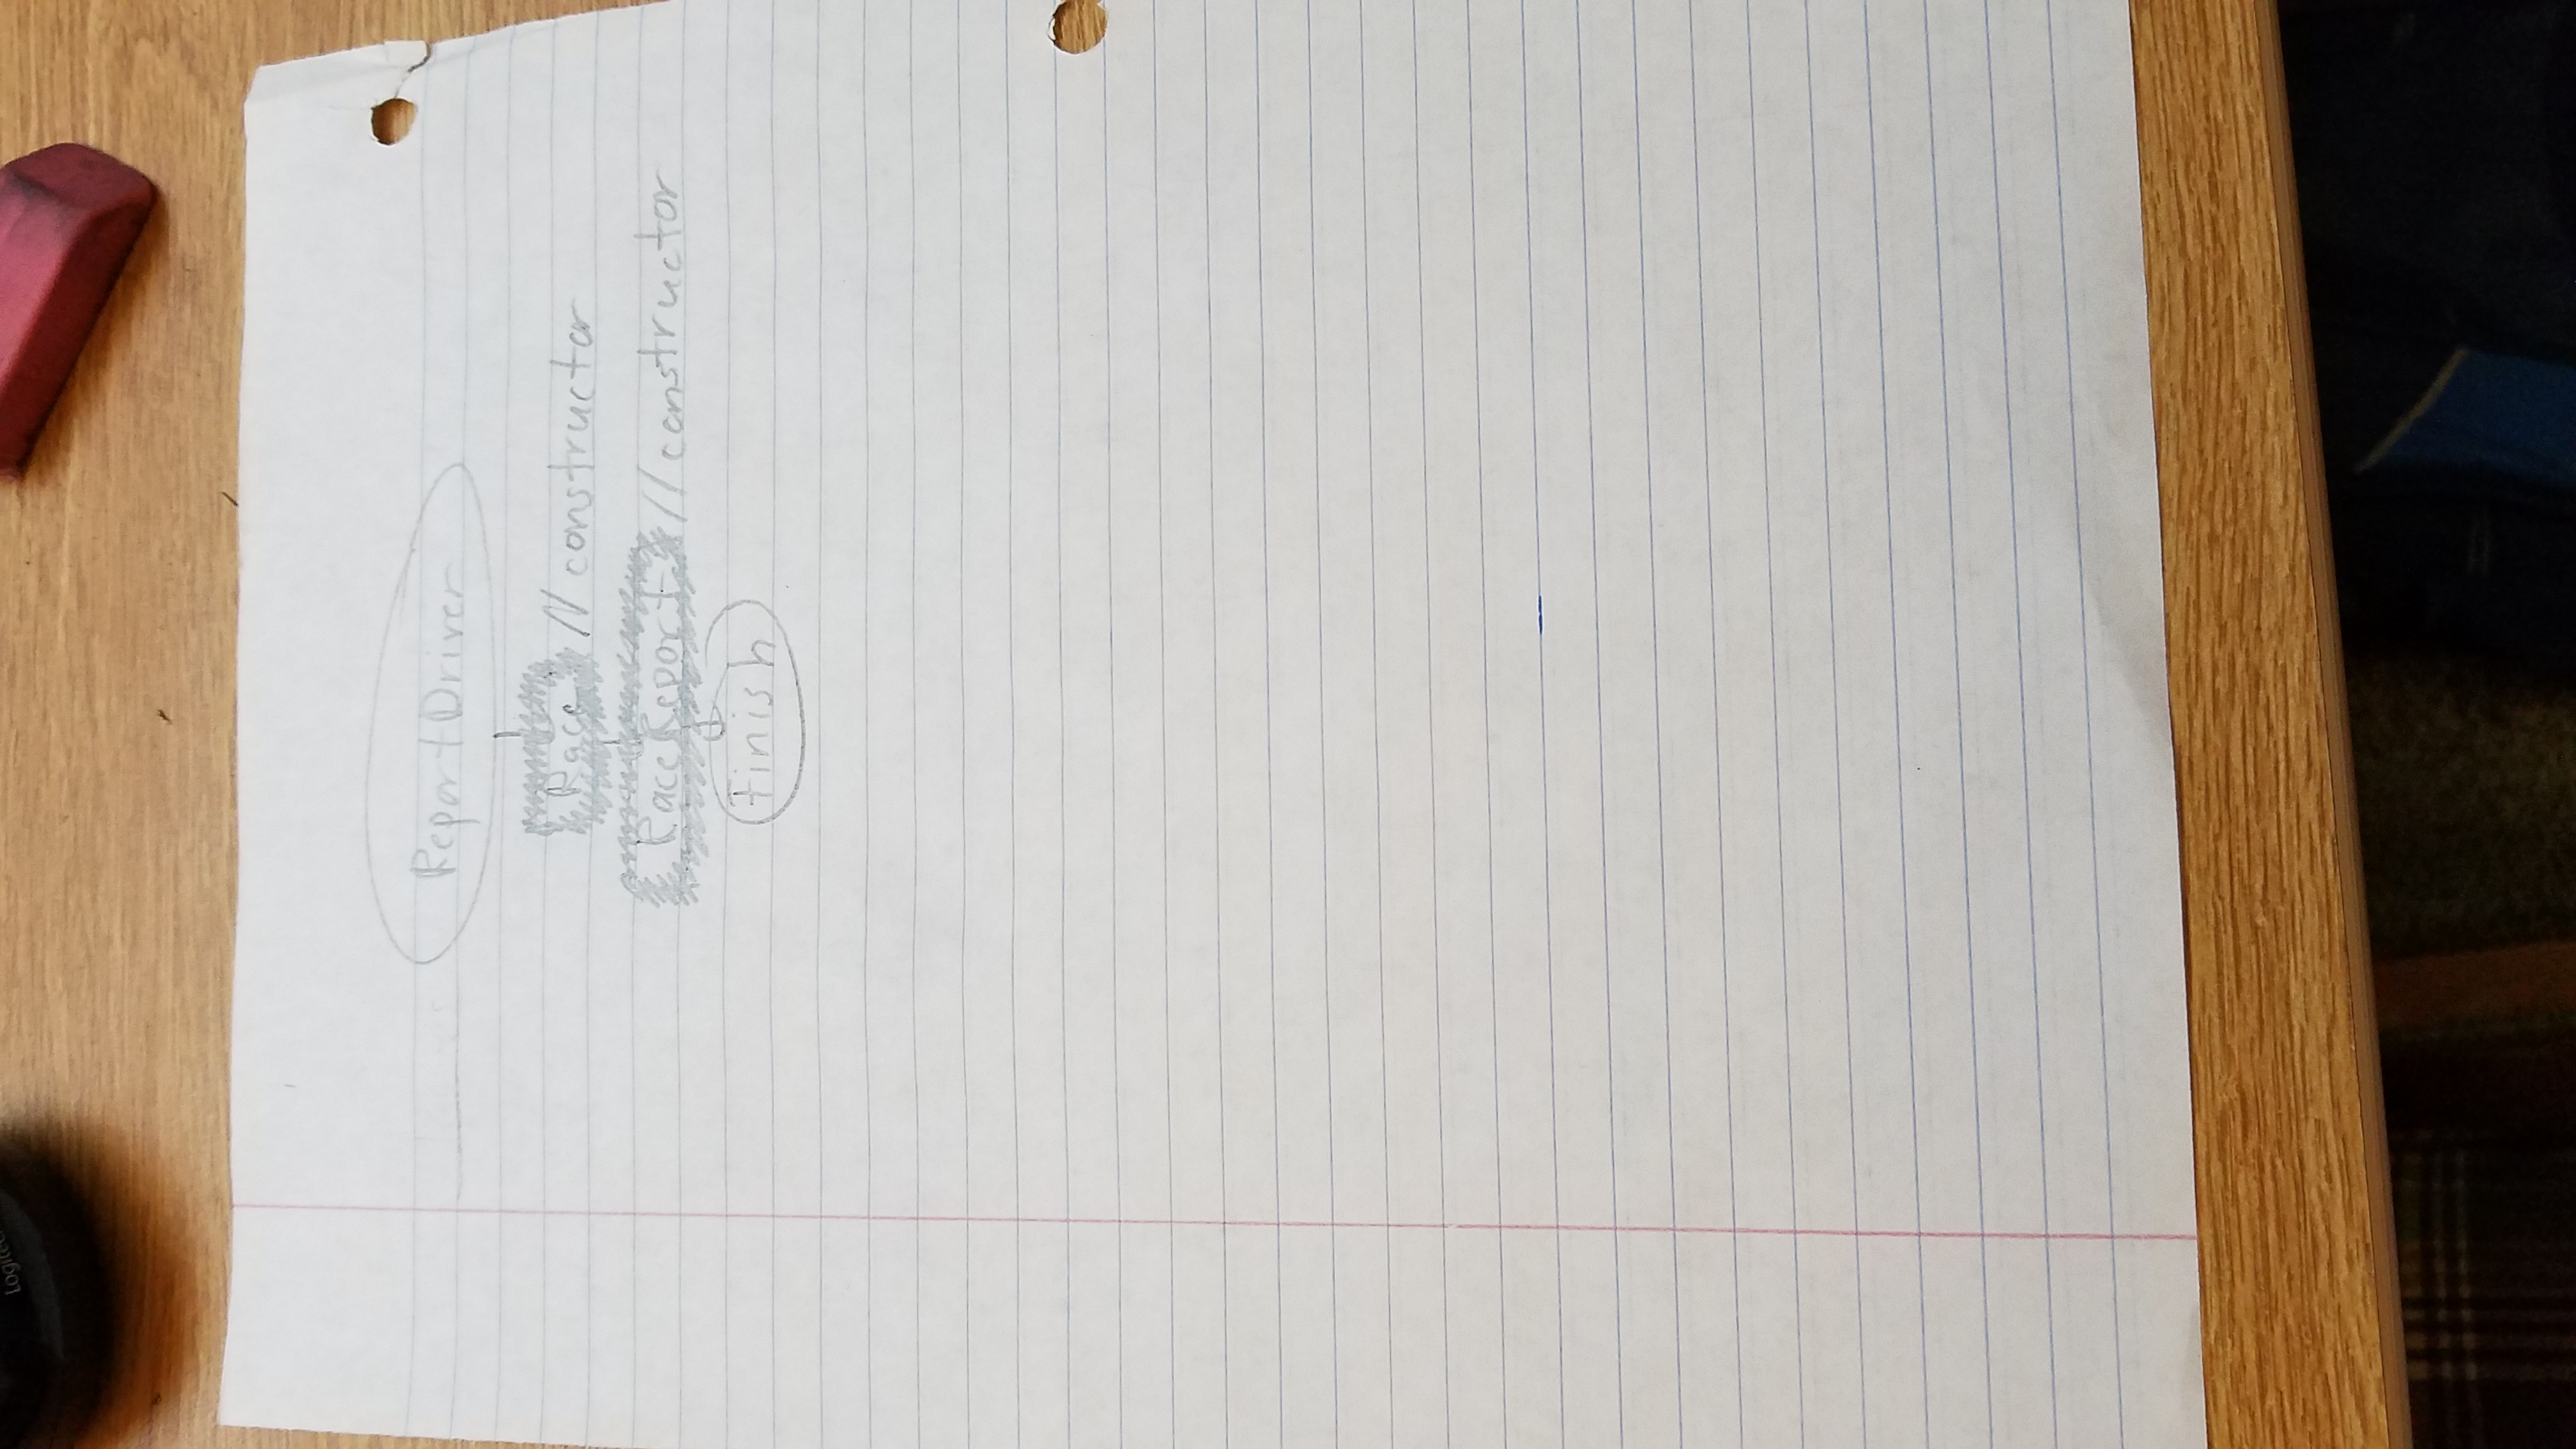 Logitech
ReportDriver
Race // constructor
RaceReport // constructor
Finish